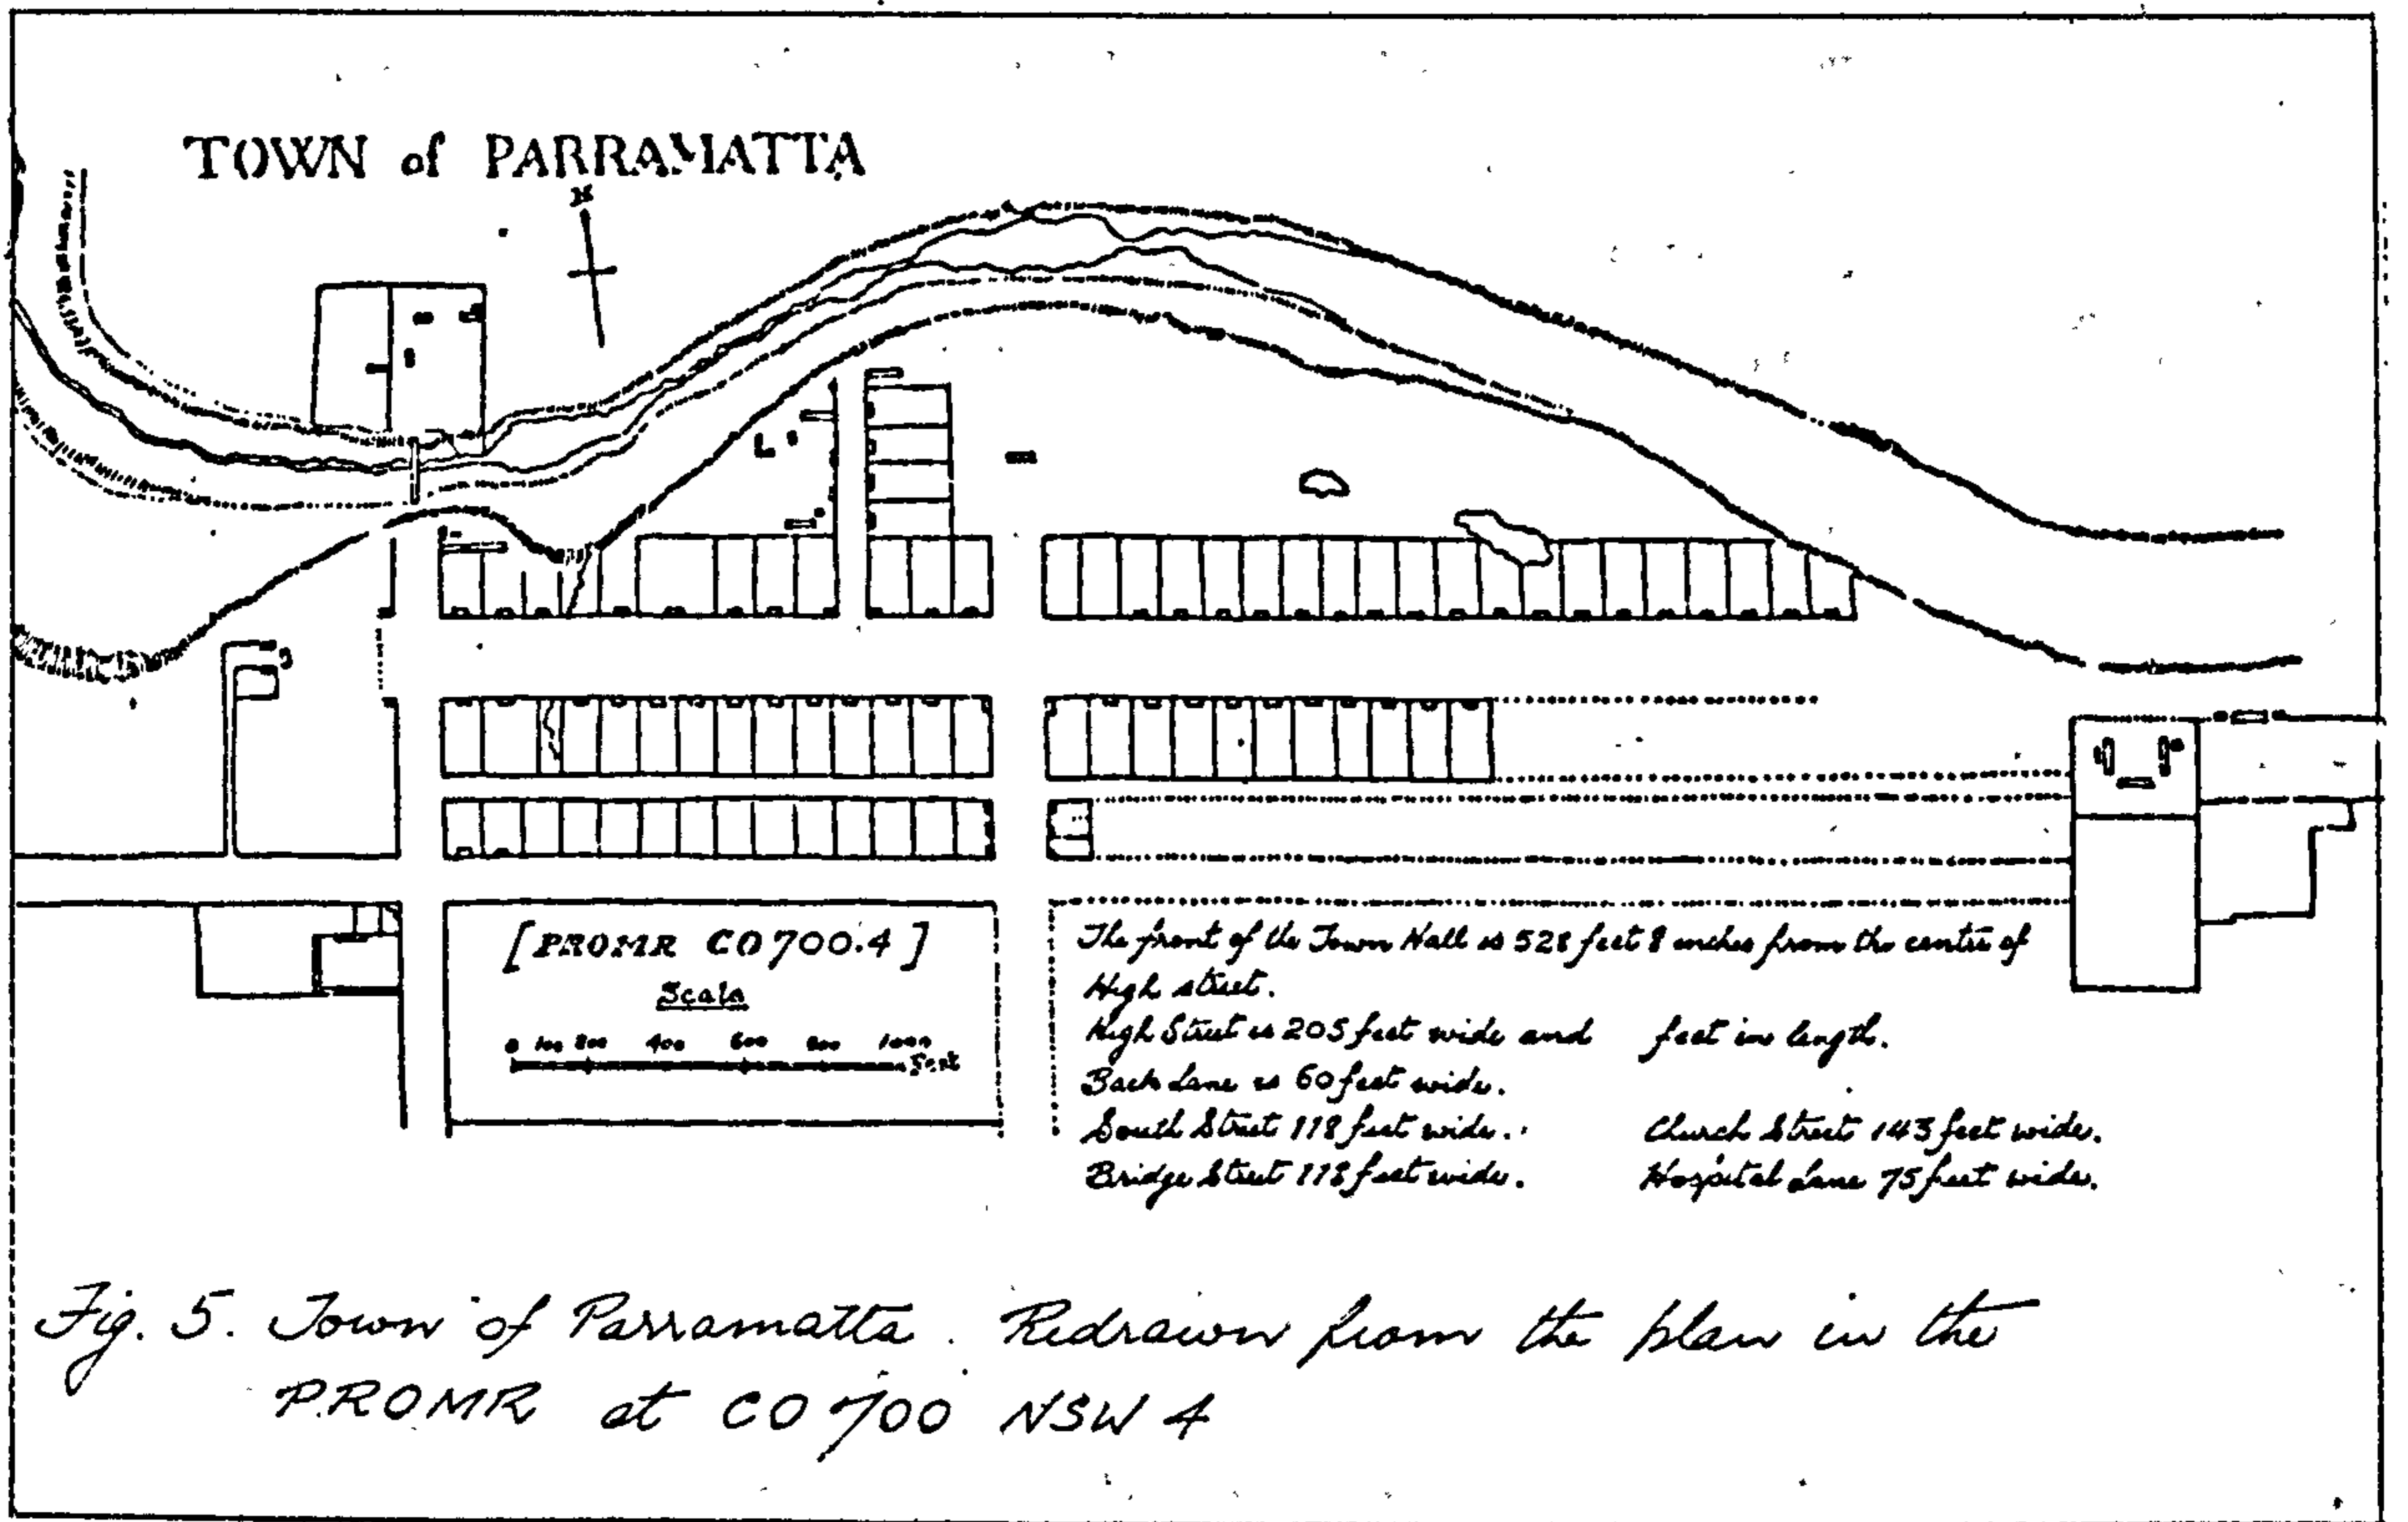 TOWN of PARRAMATTA
N
[PROMR CO700.4]
Scale
0 100 200 400 600 800 1000 Feet
The front of the Town Hall is 528 feet 8 inches from the centre of
High street.
High Street is 205 feet wide and feet in length.
Back Lane is 60 feet wide.
South Street 118 feet wide. Church Street 143 feet wide.
Bridge Street 118 feet wide. Hospital Lane 75 feet wide.
Fig. 5. Town of Parramatta. Redrawn from the plan in the
P.R.O.MR at CO 700 NSW 4